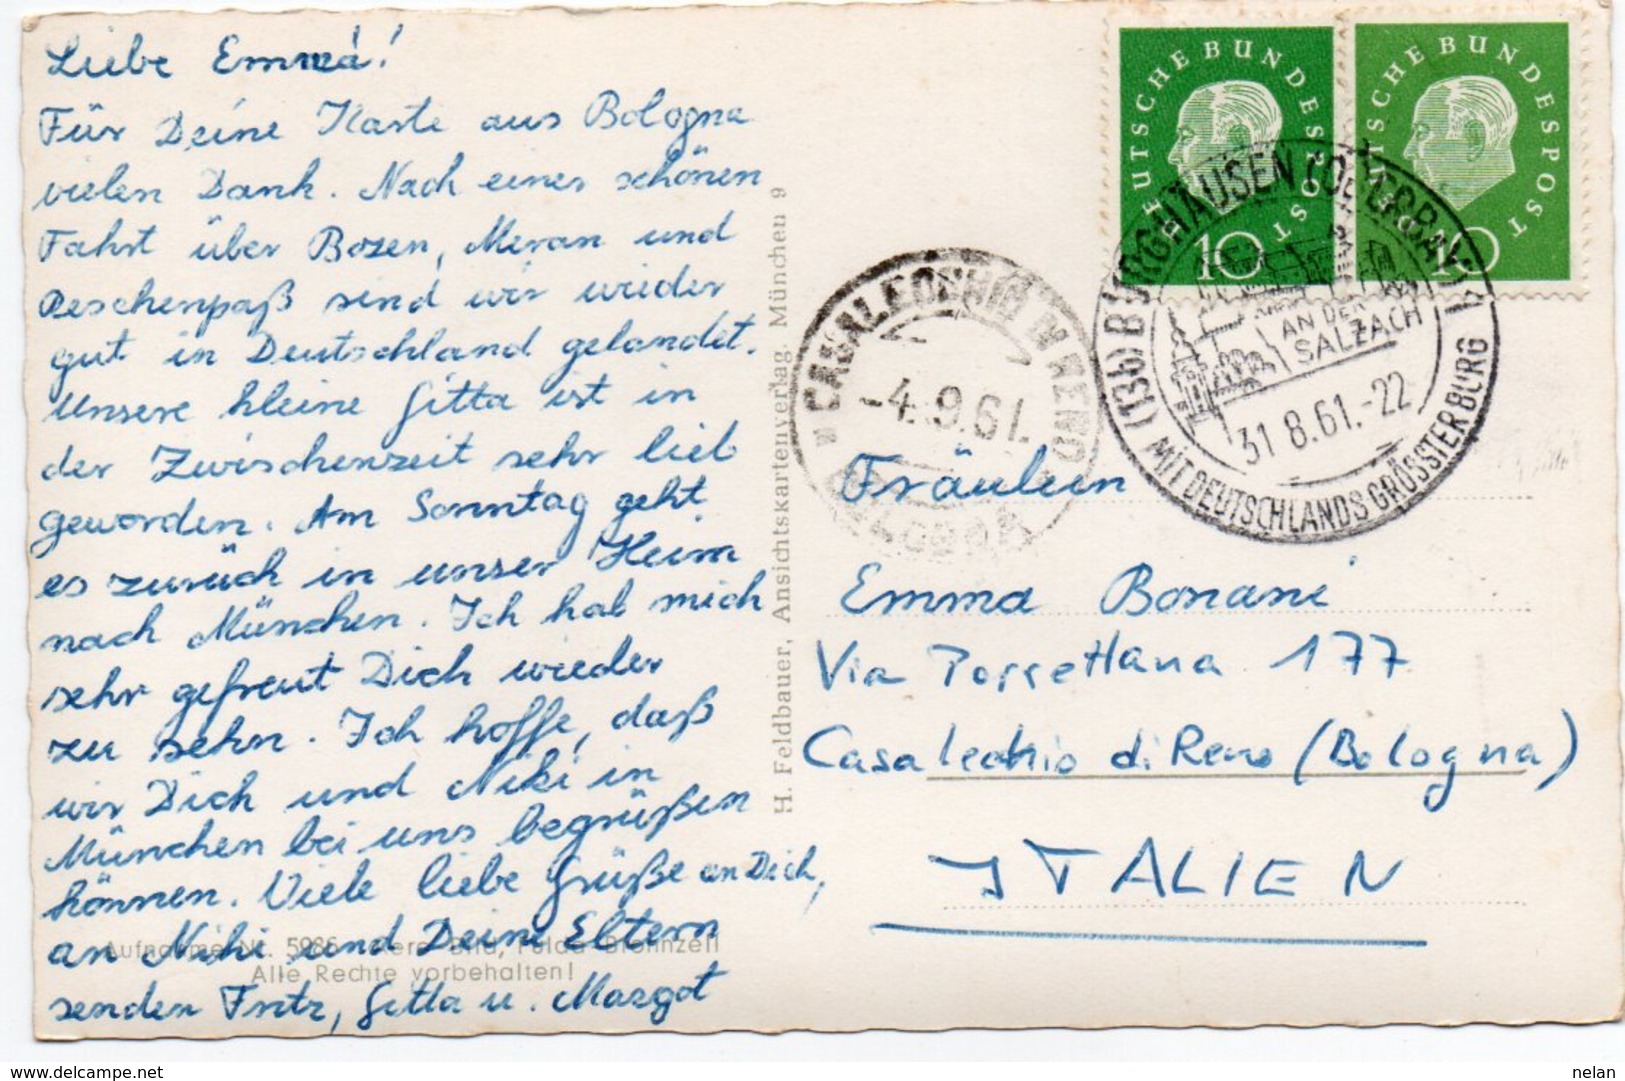 Liebe Emma!
Für Deine Karte aus Bologna
vielen Dank. Nach einer schönen
Fahrt über Bozen, Meran und
Reschenpaß sind wir wieder
gut in Deutschland gelandet.
Unsere kleine Gitta ist in
der Zwischenzeit sehr lieb
geworden. Am Sonntag geht
es zurück in unser Heim
nach München. Ich hab mich
sehr gefreut Dich wieder
zu sehn. Ich hoffe, daß
wir Dich und Niki in
München bei uns begrüßen
können. Viele liebe Grüße an Dich,
an Niki und Deine Eltern
senden Fritz, Gitta u. Margot
Aufnahme Nr. 5986 Bild, Fulda-Bronnzell
Alle Rechte vorbehalten!
H. Feldbauer, Ansichtskartenverlag. München 9
DEUTSCHE BUNDESPOST
10
DEUTSCHE BUNDESPOST
10
(13b) BURGHAUSEN (OBERBAY)
AN DER
SALZACH
31 8.61.-22
MIT DEUTSCHLANDS GRÖSSTER BURG
CASALECCHIO DI RENO
-4.9.61.
Fräulein
Emma Bonani
Via Porrettana 177
Casalecchio di Reno (Bologna)
ITALIEN
www.delcampe.net
nelan